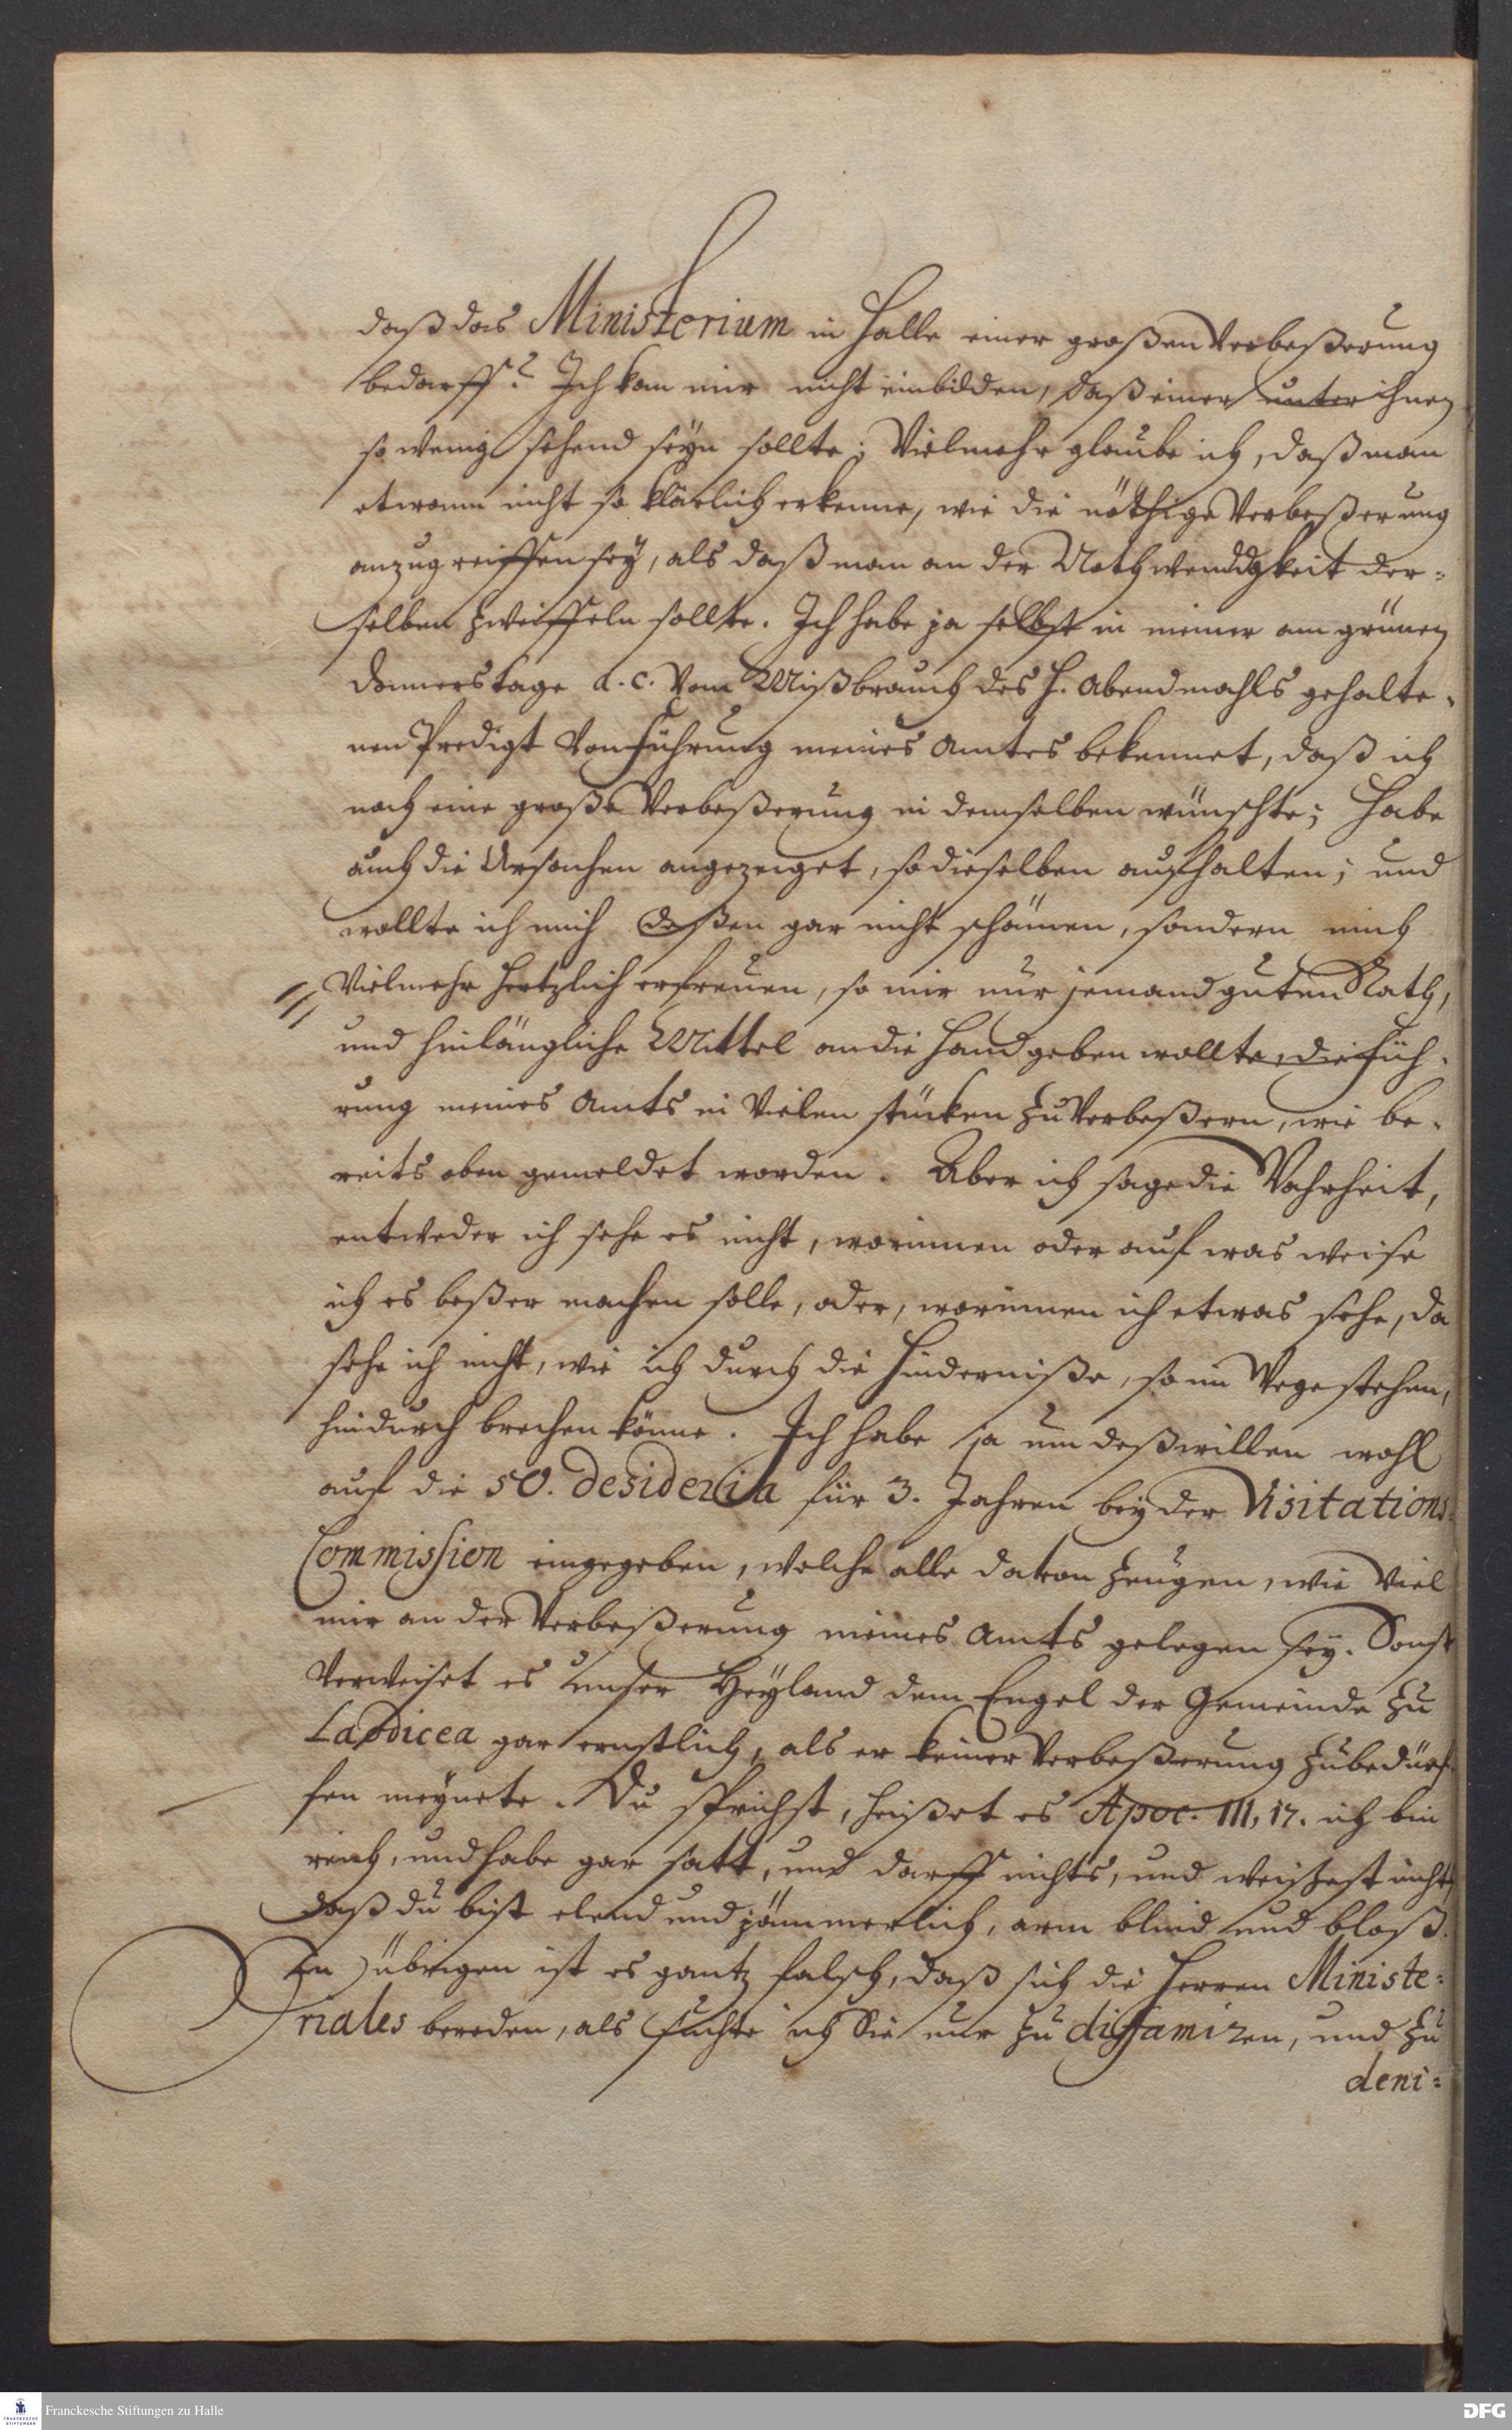 daß das Ministerium in Halle einer großen Verbeßerung
bedarff? Ich kan mir nicht einbilden, daß einer unter ihnen
so wenig sehend seyn sollte; Vielmehr glaube ich, daß man
etwann nicht so klärlich erkenne, wie die nöthige Verbeßerung
anzugreiffen sey, als daß man an der Nothwendigkeit der-
selben zweiffeln sollte. Ich habe ja selbst in meiner am grünen
Donnerstage a. c. Vom Mißbrauch des H. Abendmahls gehalte-
nen Predigt Von Führung meines Amtes bekennet, daß ich
noch eine große Verbeßerung in demselben wünschte; Habe
auch die Ursachen angezeiget, so dieselben aufhalten; und
wollte ich mich deßen gar nicht schämen, sondern mich
Vielmehr hertzlich erfreuen, so mir nur jemand guten Rath,
und hinlängliche Mittel an die Hand geben wollte, die Füh-
rung meines Amts in Vielen stücken zu Verbeßern, wie be-
reits oben gemeldet worden. Aber ich sage die Wahrheit,
entweder ich sehe es nicht, worinnen oder auf was weise
ich es beßer machen solle, oder, worinnen ich etwas sehe, da
sehe ich nicht, wie ich durch die Hinderniße, so im Wege stehen,
hindurch brechen könne. Ich habe ja um deßwillen wohl
auf die 50. desideria für 3. Jahren bey der Visitations-
Commission eingegeben, welche alle davon zeugen, wie Viel
mir an der Verbeßerung meines Amts gelegen sey. Sonst
Verweiset es unser Heyland dem Engel der Gemeinde zu
Laodicea gar ernstlich, als er keiner Verbeßerung zu bedürf-
fen meynete. Du sprichst, heißet es Apoc. III, 17. ich bin
reich, und habe gar satt, und darff nichts, und weißest nicht,
daß du bist elend und jämmerlich, arm blind und bloß.
Im übrigen ist es gantz falsch, daß sich die Herren Ministe-
riales bereden, als suchte ich Sie nur zu diffamiren, und zu
deni-
Franckesche Stiftungen zu Halle
FRANCKESCHE STIFTUNGEN
DFG